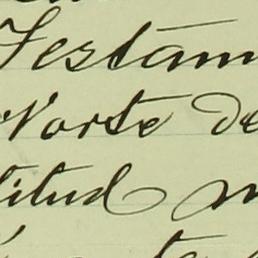 Testam
Norte de
titud m